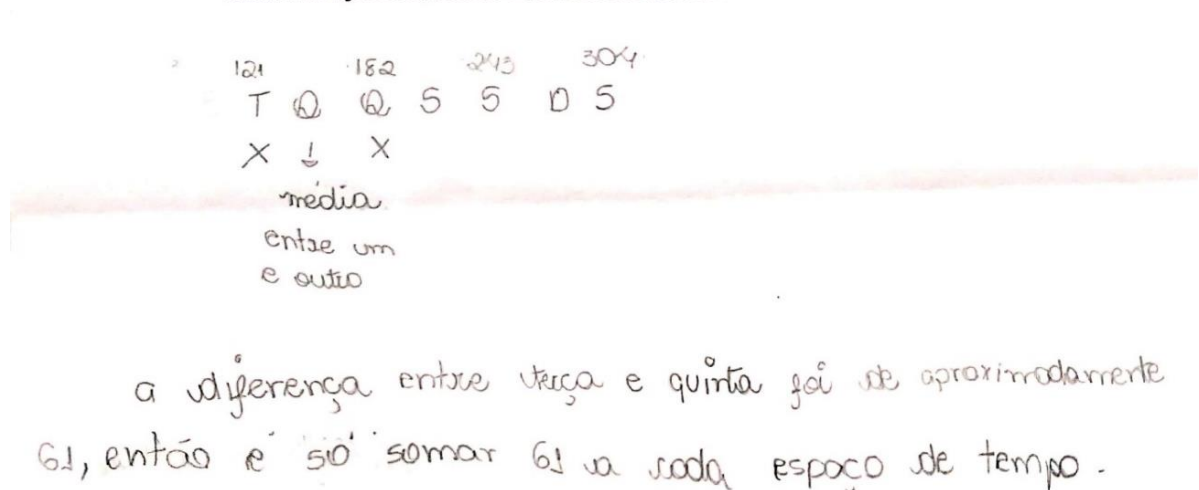 121 182 243 304
T Q Q S S D S
X ↓ X
média
entre um
e outro
a diferença entre terça e quinta foi de aproximadamente
61, então é só somar 61 a cada espaço de tempo.